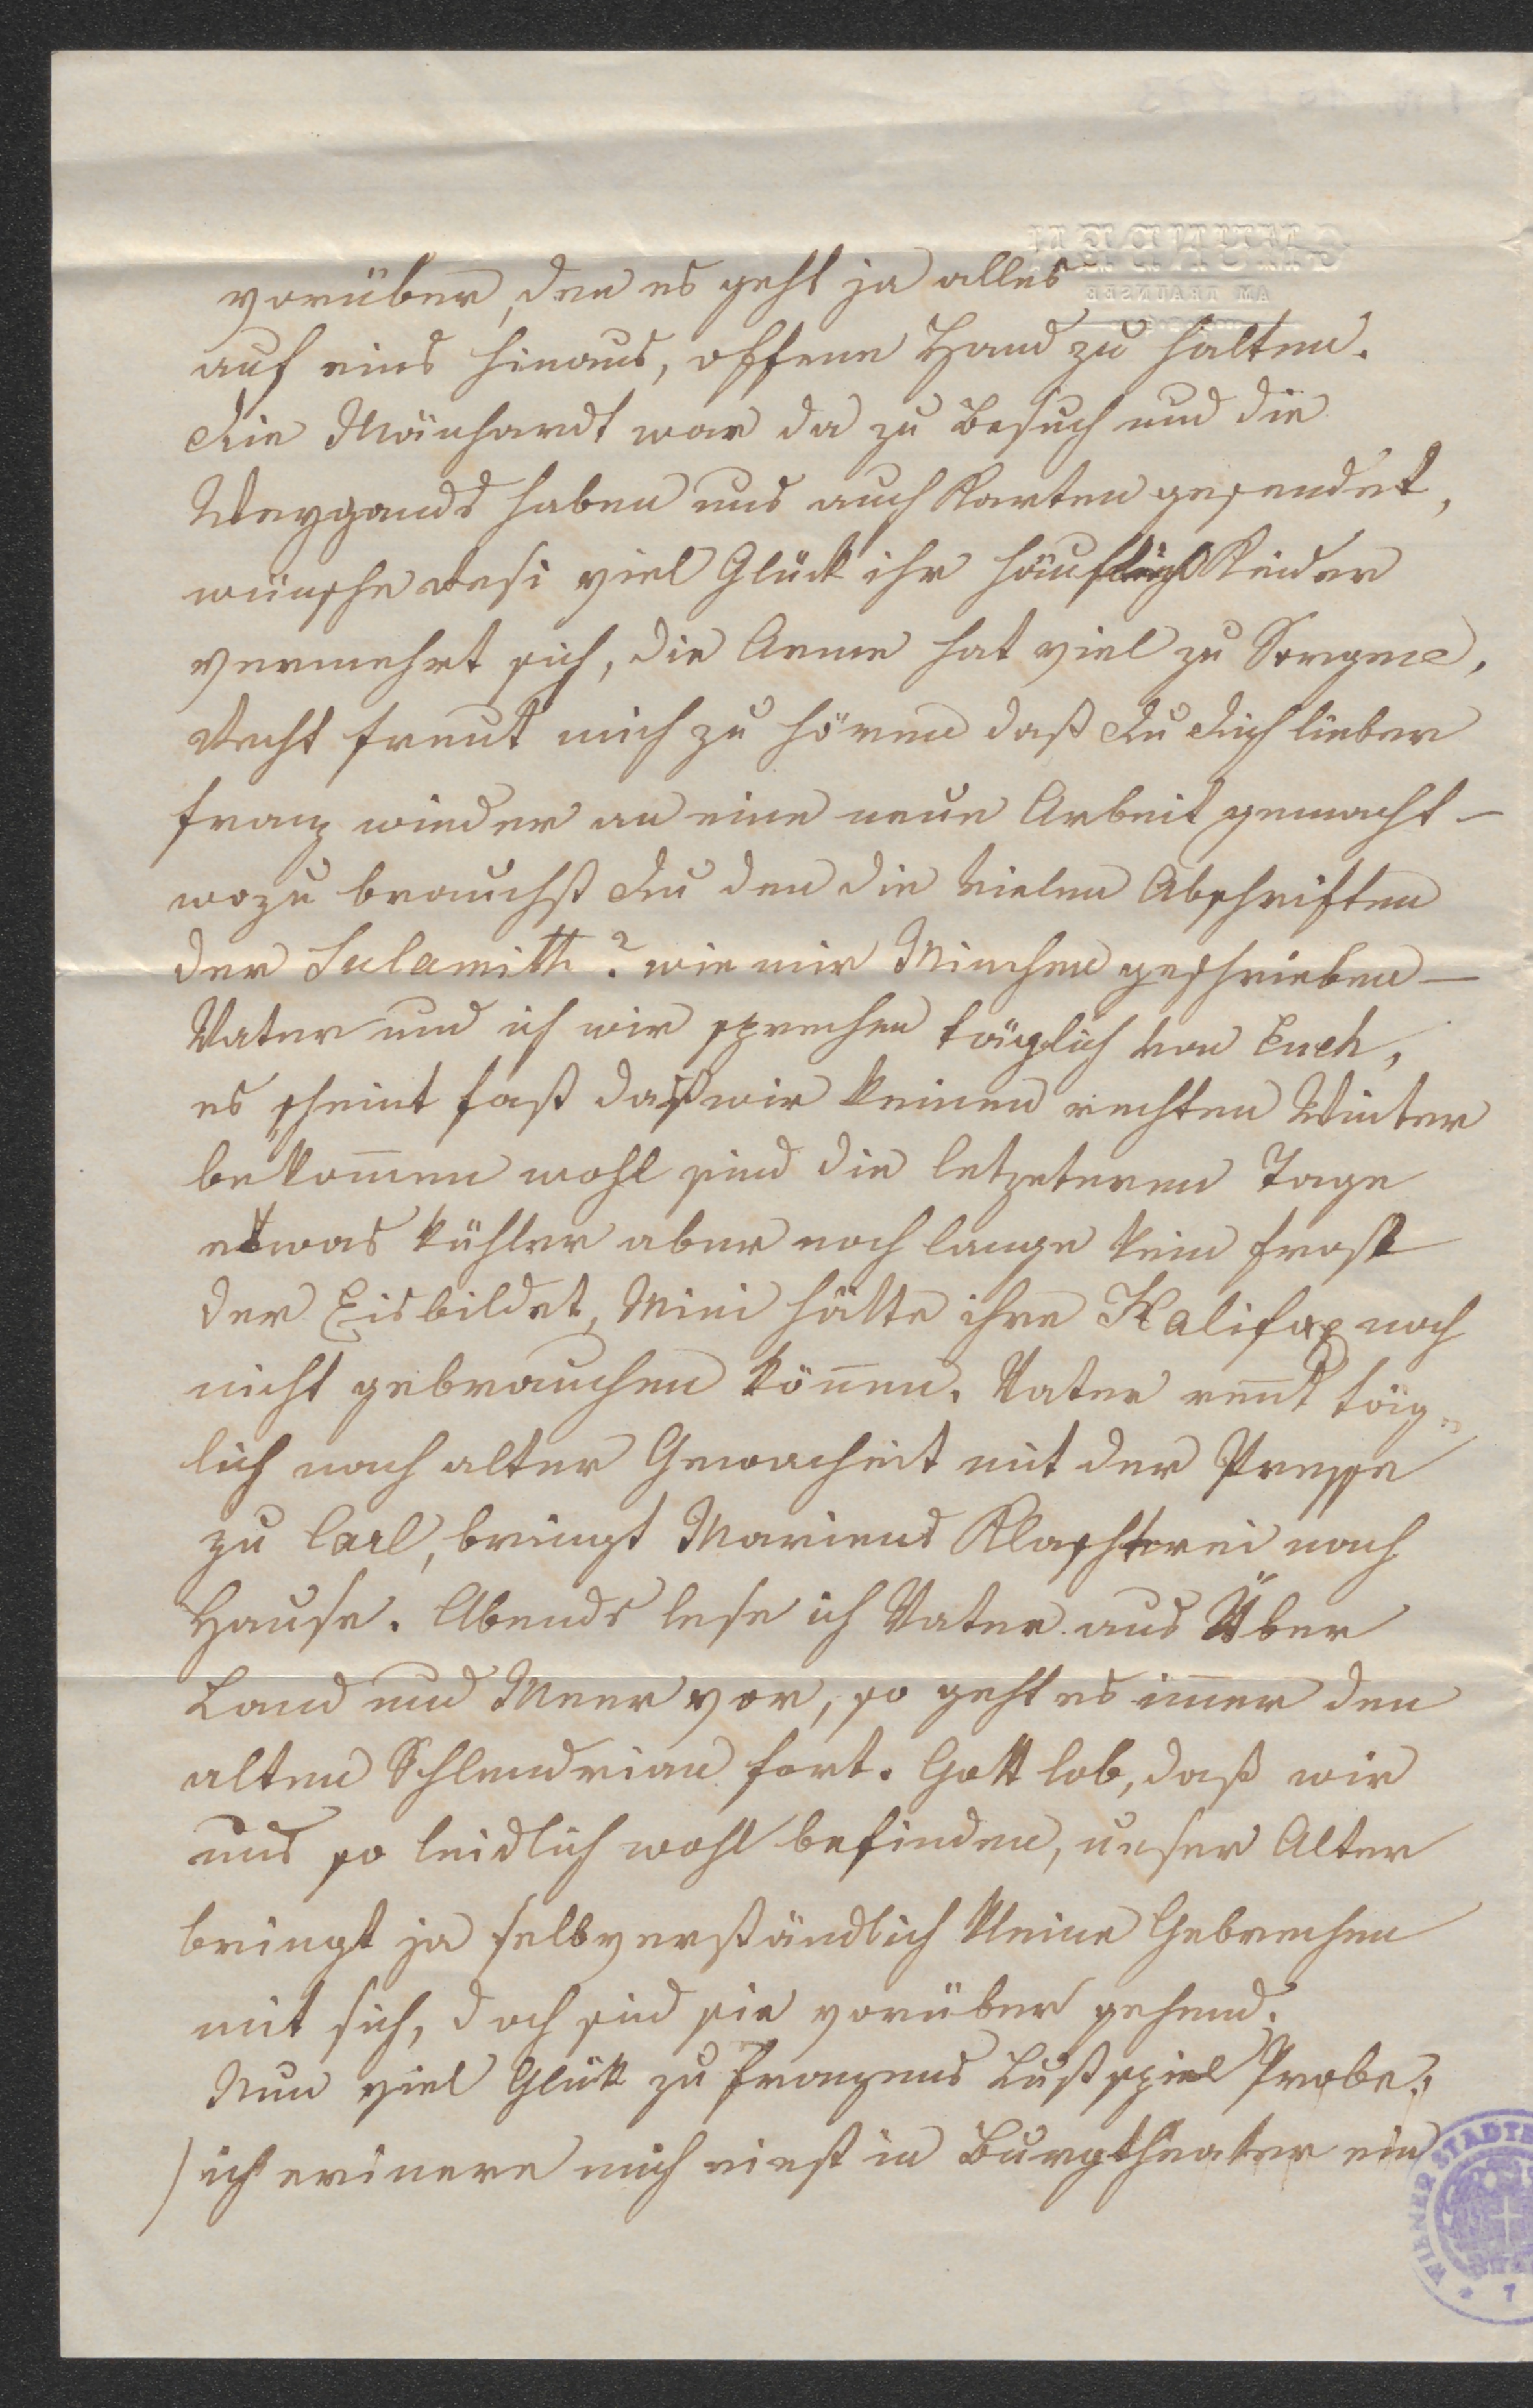 vorüber, den es geht ja alles
auf eins hinaus, offene Hand zu halten.
Die Mänhardt war da zu Besuch und die
Weygands haben uns auch Karten gesendet,
wünsche Resi viel Glück ihr Häuflein Kinder
vermehrt sich, die Arme hat viel zu Sorgen.
Recht freut mich zu hören daß Du Dich lieber
Franz wieder an eine neue Arbeit gemacht –
wozu brauchst Du den die vielen Abschriften
der Sulamith? wie mir Minchen geschrieben –
Vater und ich wir sprechen täglich von Euch,
es scheint fast daß wir keinen rechten Winter
bekom̅en wohl sind die letzteren Tage
etwas kühler aber noch lange kein Frost
der Eis bildet, Mini hätte ihre Halifax noch
nicht gebrauchen kön̅en. Vater ren̅t täg-
lich nach alter Gewohnheit mit der Presse
zu Carl, bringt Mariens Klascherei nach
Hause. Abends lese ich Vater aus Über
Land und Meer vor, so geht es im̅er den
alten Schlendrian fort. Gott lob, daß wir
uns so leidlich wohl befinden, unser Alter
bringt ja selbverständlich kleine Gebrechen
mit sich, doch sind sie vorüber gehend.
Nun viel Glük zu Franzens Lustspiel Probe,
ich erinere mich einst in Burgtheater ein
AM TRAUNSEE
WIENER STADTB
7